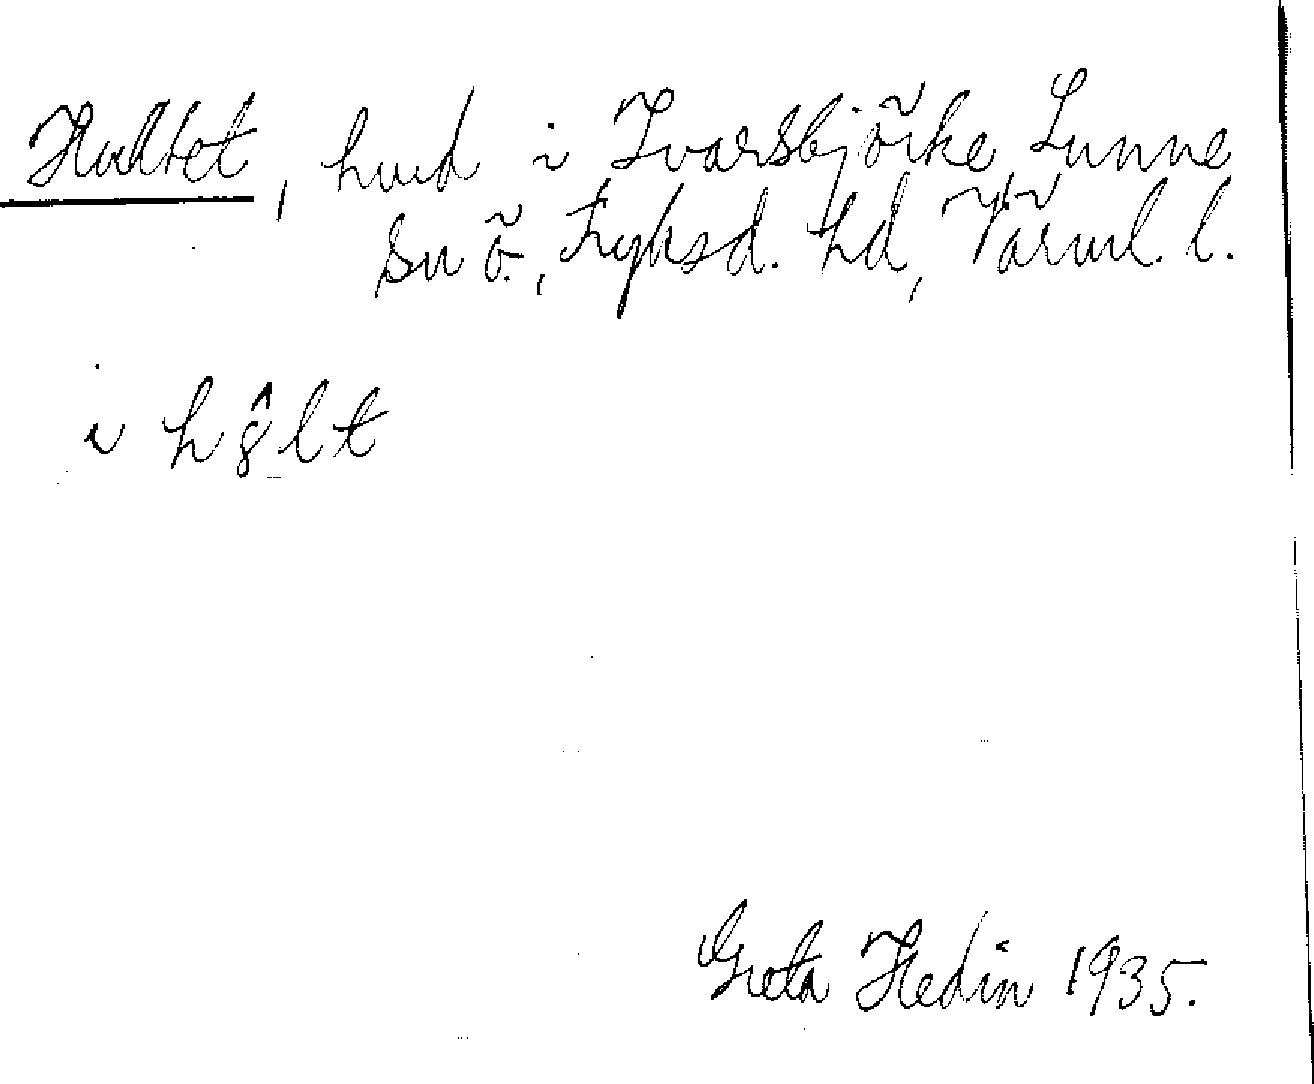 Hultet, hmd i Ivarsbjörke, Sunne
sn ö., Fryksd. hd, Värml. l.
i h8̂lt
Greta Hedin 1935.